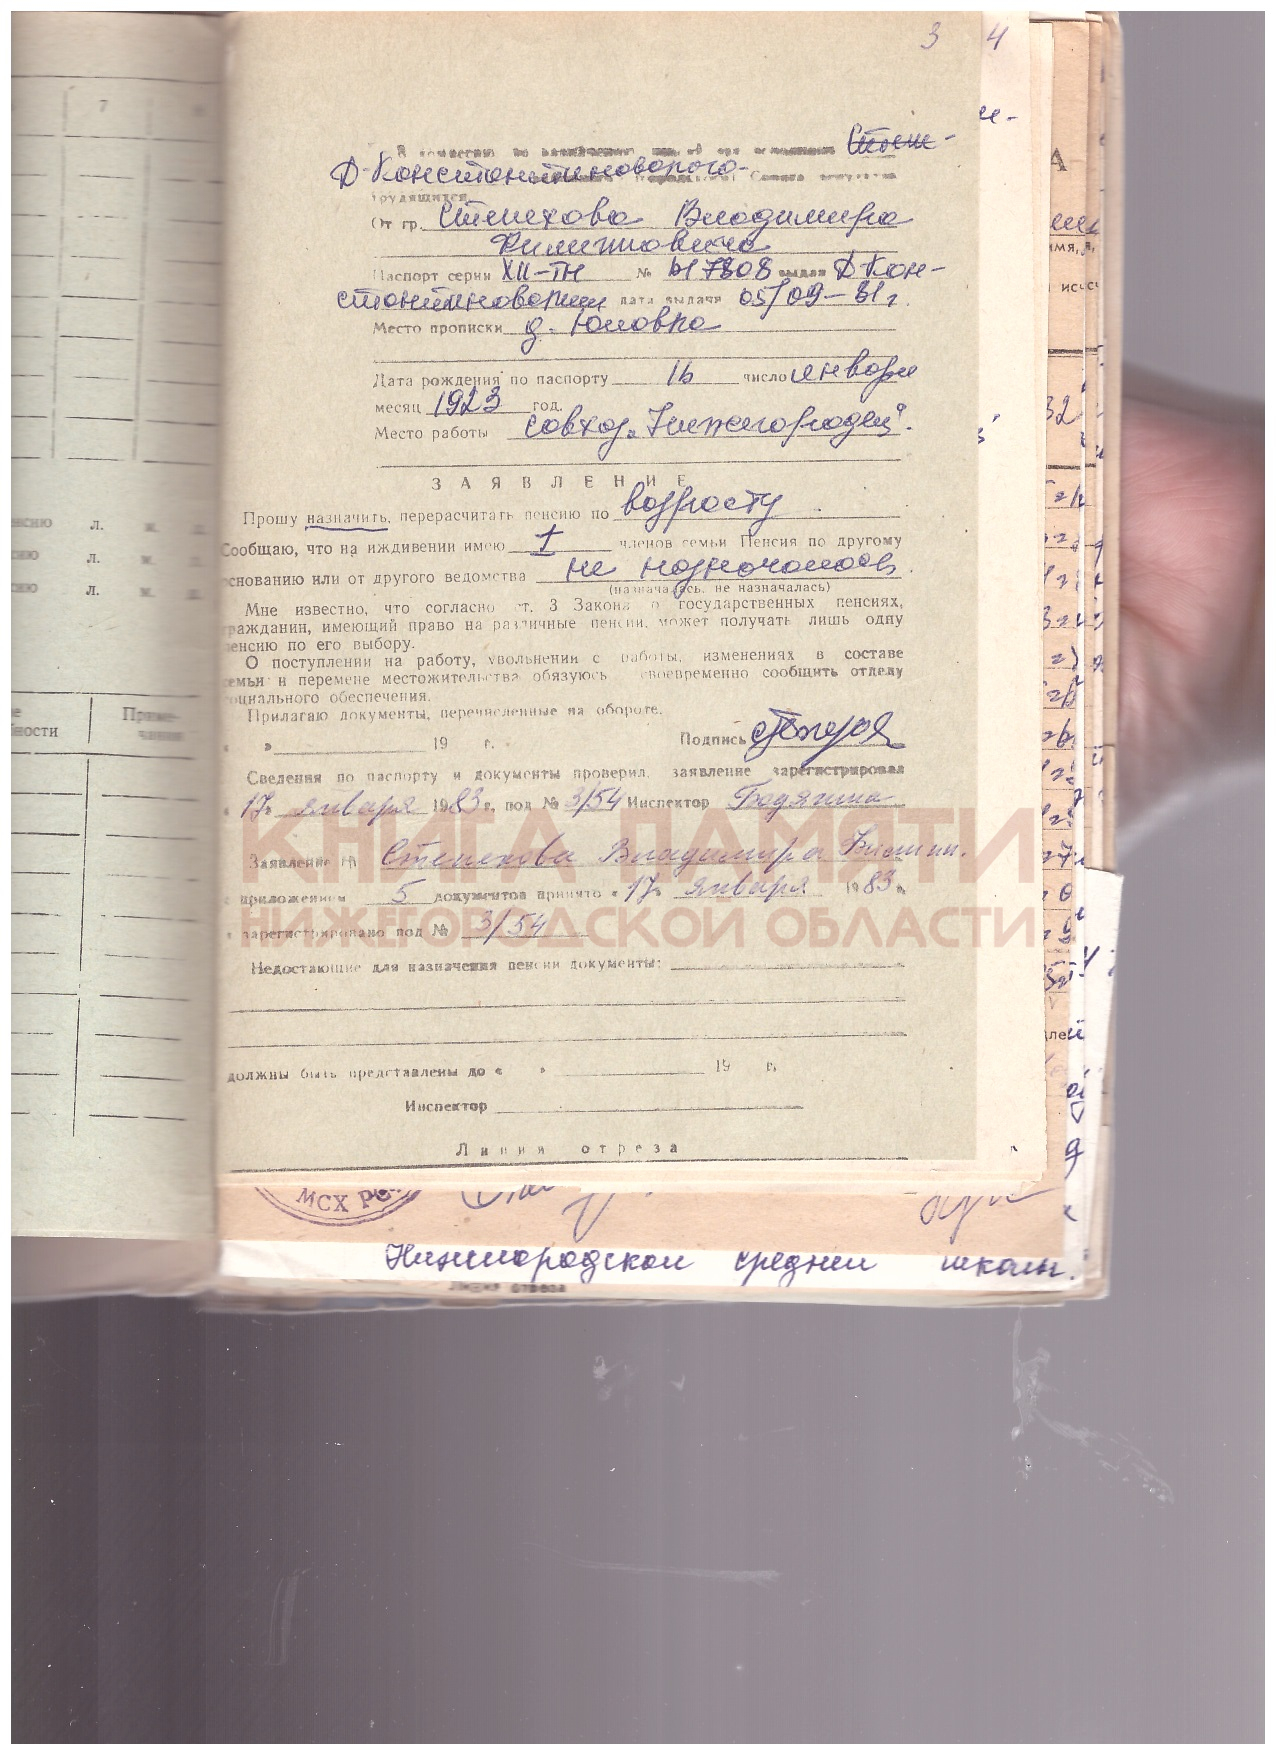 3 4
7
В комиссию по назначению пенсий при исполкоме
Д-Константиновского
трудящихся
От гр. Степехова Владимира
Филипповича
Паспорт серии XII-ТН № 617808 выдан Д Кон-
стантиновским дата выдачи 05/09-81 г.
Место прописки д. Юловка
Дата рождения по паспорту 16 число января
месяц 1923 год.
Место работы совхоз „Нижегородец".
ЗАЯВЛЕНИЕ
Прошу назначить, перерасчитать пенсию по возрасту
Сообщаю, что на иждивении имею 1 членов семьи Пенсия по другому
основанию или от другого ведомства не назначалась.
(назначалась, не назначалась)
Мне известно, что согласно ст. 3 Закона о государственных пенсиях,
гражданин, имеющий право на различные пенсии, может получать лишь одну
пенсию по его выбору.
О поступлении на работу, увольнении с работы, изменениях в составе
семьи и перемене местожительства обязуюсь своевременно сообщить отделу
социального обеспечения.
Прилагаю документы, перечисленные на обороте.
« »  19 г. Подпись
Сведения по паспорту и документы проверил, заявление зарегистрировал
« 17 » января 1983 г. под № 3/54 Инспектор
КНИГА ПАМЯТИ
Заявление гр. Степехова Владимира Филип.
с приложением 5 документов принято « 17 » января 1983 г.
НИЖЕГОРОДСКОЙ ОБЛАСТИ
и зарегистрировано под № 3/54
Недостающие для назначения пенсии документы:
должны быть представлены до « » 19 г.
Инспектор
Линия отреза
МСХ
средней школы.
Линия отреза
л. м.
л. м.
л. м.
Приме-
чание